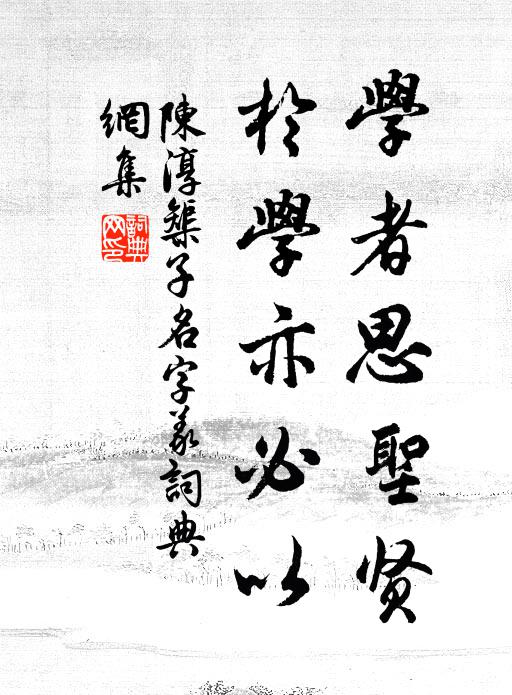 學者思聖贤
於學亦必以
陳淳築子名字義詞典
網集
詞典
网印